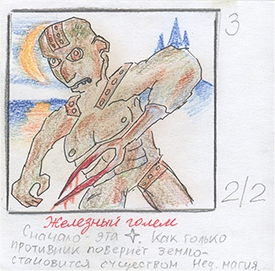 3
2/2
Железный голем
Сначало - эта ✧. Как только
противник повернёт землю-
становится существом. Нед. магия